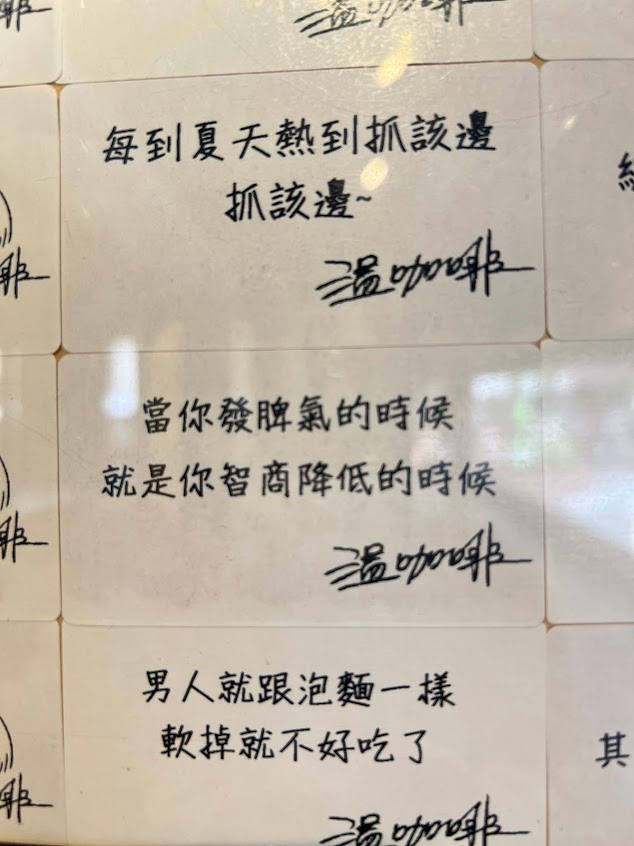 溫咖啡
每到夏天熱到抓該邊
抓該邊~
溫咖啡
啡
當你發脾氣的時候
就是你智商降低的時候
溫咖啡
啡
男人就跟泡麵一樣
軟掉就不好吃了
其
溫咖啡
啡